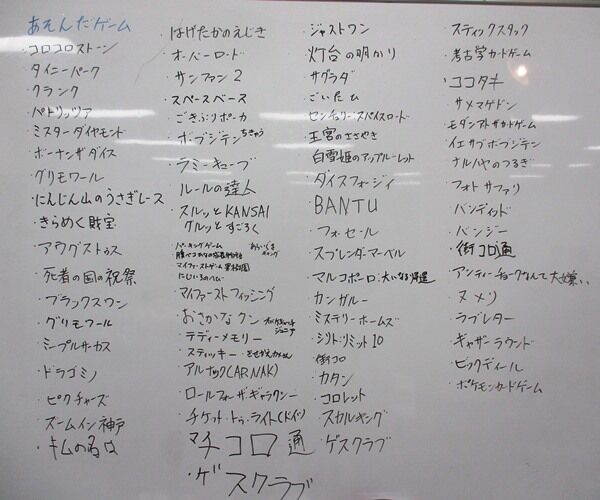 あそんだゲーム
・コロコロストーン
・タイニーパーク
・クランク
・パトリッツァ
・ミスターダイヤモンド
・ボーナンザダイス
・グリモワール
・にんじん山のうさぎレース
・きらめく財宝
・アウグストゥス
・死者の国の祝祭
・ブラックスワン
・グリモワール
・ミープルサーカス
・ドラゴミノ
・ピクチャーズ
・ズームイン神戸
・キムの名は
・はげたかのえじき
・オーバーロード
・サンファン2
・スペースベース
・ごきぶりポーカー
・ボブジテン ちきゅう
・ラミーキューブ
・ルールの達人
・スルッとKANSAI
ケルッとすごろく
・パーキングゲーム
・マイファーストゲーム 果樹園
・にじいろのへび
・マイファーストフィッシング
・おさかなクン
・テディーメモリー
・スティッキー
・きせかえ
・アルナック(CARNAK)
・ロールフォーザギャラクシー
・チケット・トゥ・ライト(ドイツ)
マチコロ通
・ゲスクラブ
・ジャストワン
・灯台の明かり
・サグラダ
・ごいた
・センチュリースパイスロード
・王宮のささやき
・白雪姫のアップルーレット
・ダイスフォージ
・BANTU
・フォーセール
・スプレンダーマーベル
・マルコポーロ:大いなる帰還
・カンガルー
・ミステリーホームズ
・シリトリミット10
・街コロ
・カタン
・コロレット
・スカルキング
・ゲスクラブ
・スティックスタック
・考古学カードゲーム
・ココタキ
・サメマゲドン
・モダンアトザカードゲーム
・イエサブボブジテン
・ナルハヤのつるぎ
・フォトサファリ
・バンディッド
・バンジー
・街コロ通
・アンティーチョークなんて大嫌い
・ヌメリ
・ラブレター
・ギャザーラウンド
・ビックディール
・ポケモンカードゲーム